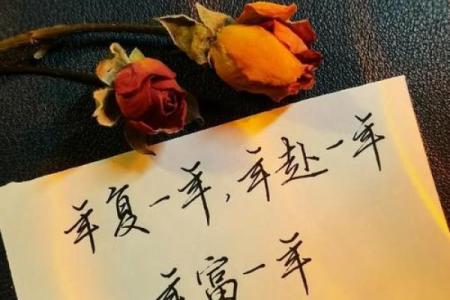 年复一年,年赴一年
年富一年